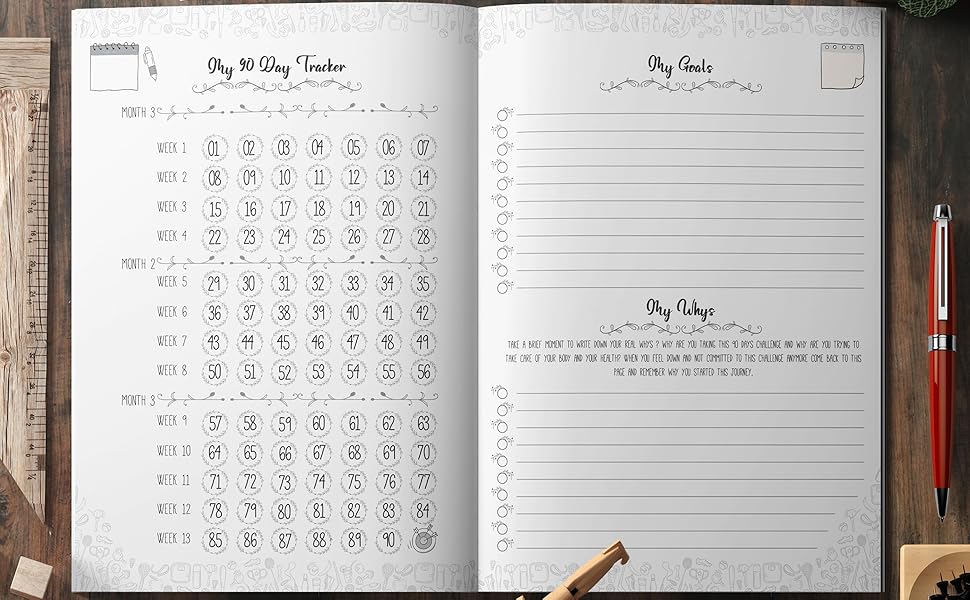 My 90 Day Tracker
MONTH 3
WEEK 1 01 02 03 04 05 06 07
WEEK 2 08 09 10 11 12 13 14
WEEK 3 15 16 17 18 19 20 21
WEEK 4 22 23 24 25 26 27 28
MONTH 2
WEEK 5 29 30 31 32 33 34 35
WEEK 6 36 37 38 39 40 41 42
WEEK 7 43 44 45 46 47 48 49
WEEK 8 50 51 52 53 54 55 56
MONTH 3
WEEK 9 57 58 59 60 61 62 63
WEEK 10 64 65 66 67 68 69 70
WEEK 11 71 72 73 74 75 76 77
WEEK 12 78 79 80 81 82 83 84
WEEK 13 85 86 87 88 89 90
My Goals
My Whys
TAKE A BRIEF MOMENT TO WRITE DOWN YOUR REAL WHYS ? WHY ARE YOU TAKING THIS 90 DAYS CHALLENGE AND WHY ARE YOU TRYING TO
TAKE CARE OF YOUR BODY AND YOUR HEALTH? WHEN YOU FEEL DOWN AND NOT COMMITTED TO THIS CHALLENGE ANYMORE COME BACK TO THIS
PAGE AND REMEMBER WHY YOU STARTED THIS JOURNEY.